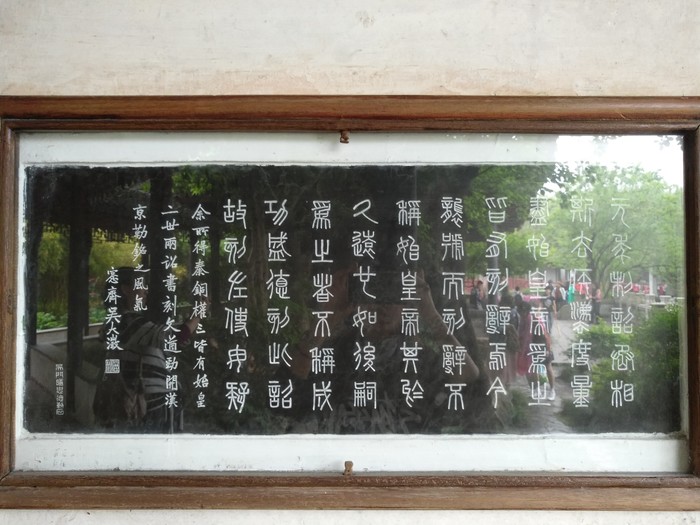 元年制詔丞相
斯去疾灋度量
盡始皇帝爲之
皆有刻辭焉今
襲號而刻辭不
稱始皇帝其於
久遠也如後嗣
爲之者不稱成
功盛德刻此詔
故刻左使毋疑
余所得秦銅權三皆有始皇
二世兩詔書刻文遒勁開漢
京勒銘之風氣
愙齋吳大澂